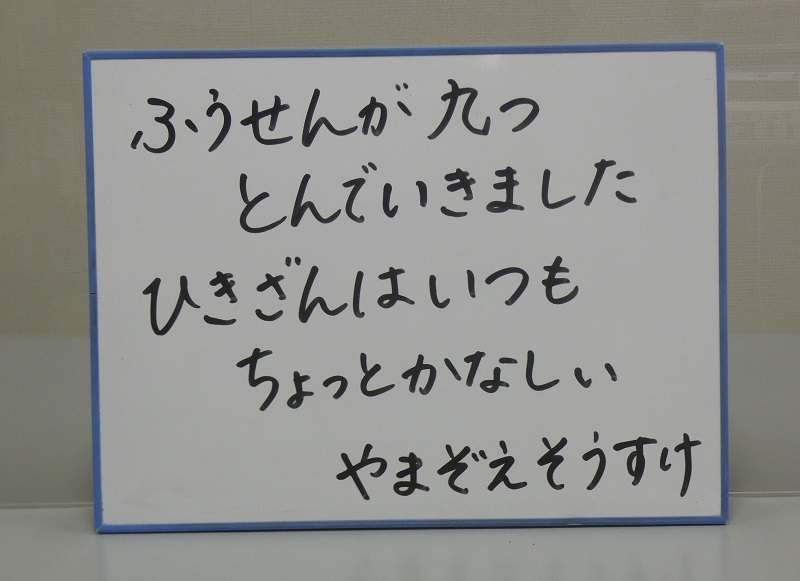 ふうせんが九つ
とんでいきました
ひきざんはいつも
ちょっとかなしい
やまぞえそうすけ